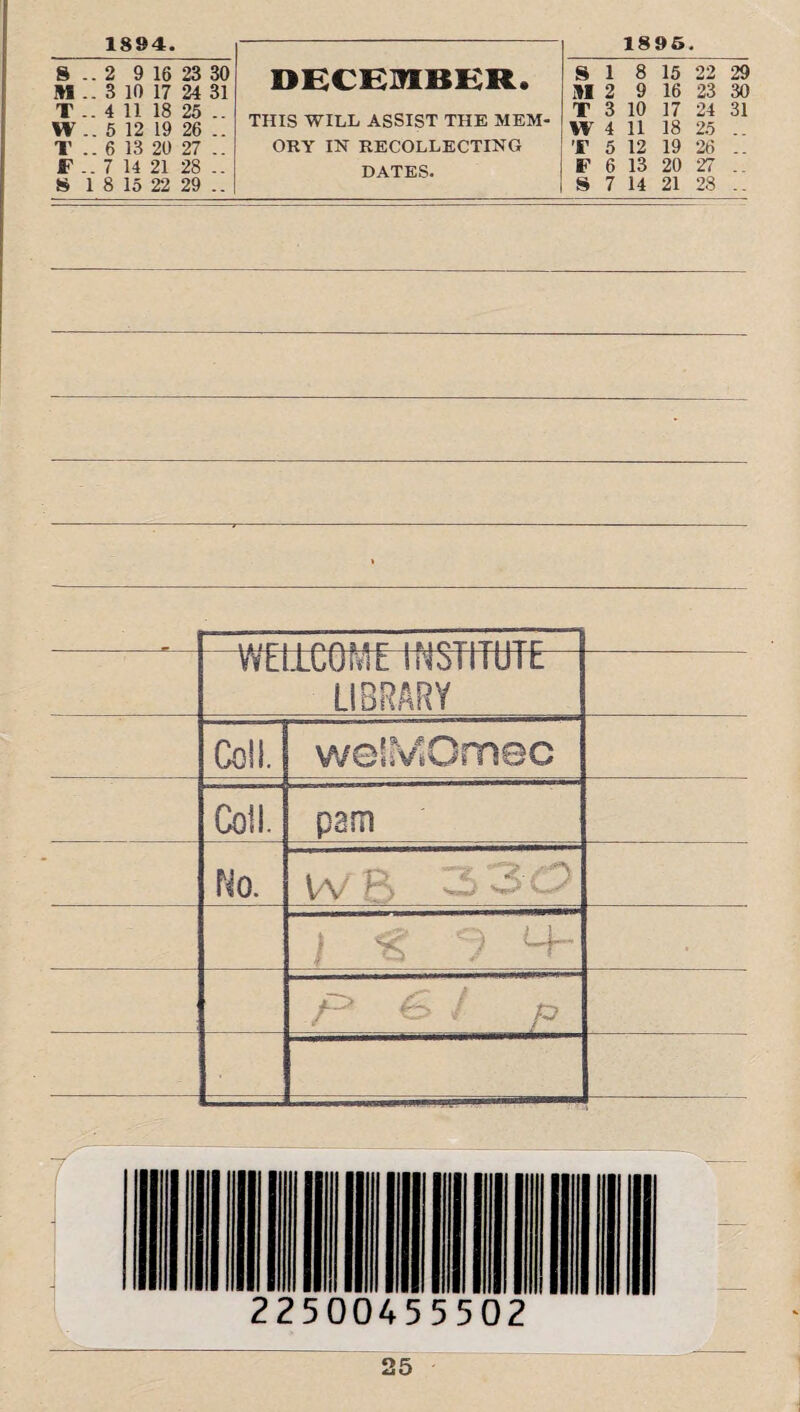 1894.
S .. 2 9 16 23 30
M .. 3 10 17 24 31
T .. 4 11 18 25 ..
W .. 5 12 19 26 ..
T .. 6 13 20 27 ..
F .. 7 14 21 28 ..
S 1 8 15 22 29 ..
DECEMBER.
THIS WILL ASSIST THE MEM-
ORY IN RECOLLECTING
DATES.
1895.
S 1 8 15 22 29
M 2 9 16 23 30
T 3 10 17 24 31
W 4 11 18 25 ..
T 5 12 19 26 ..
F 6 13 20 27 ..
S 7 14 21 28 ..
WELLCOME INSTITUTE
LIBRARY
Coll. welMOmec
Coll. pam
No. WB 330
1894
P61p
22500455502
25